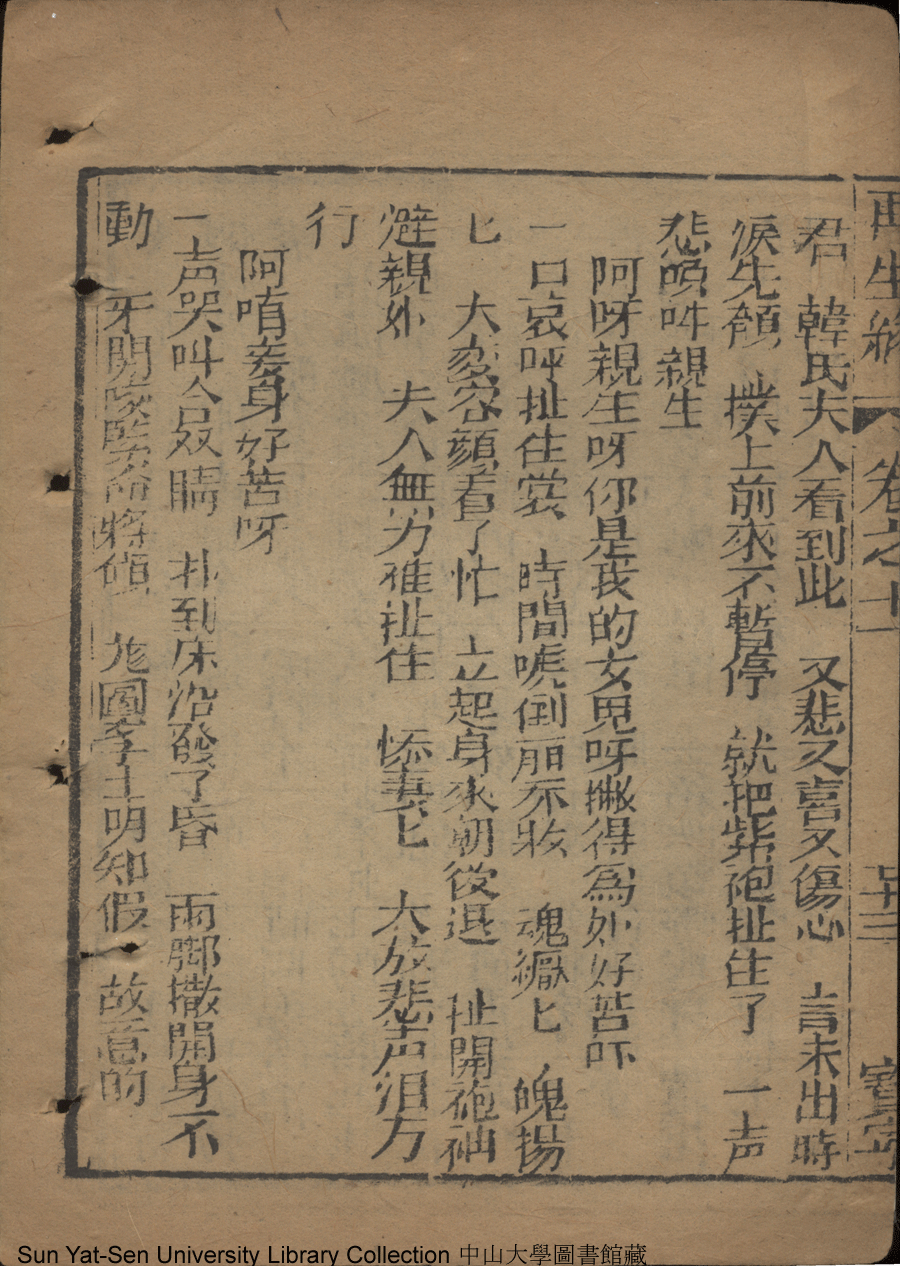 再生緣 卷之十一 五十三 寶寧
君 韓氏夫人看到此 又悲又喜又傷心 言未出時
淚先傾 撲上前來不暫停 就把紫袍扯住了 一声
悲喚叫親生
阿呀親生呀你是我的女兒呀撇得為娘好苦吓
一口哀呼扯住裳 時間唬倒麗不收 魂𦂶匕 魄揚
匕 大变容顏着了忙 立起身來朝後退 扯開袍袖
避親娘 夫人無力难扯住 怀妻匕 大放悲声泪方
行
阿唷妾身好苦呀
一声哭叫合双睛 扑到床沿發了昏 兩脚撒開身不
動 牙関咬緊命將傾 龙圖孝士明知假 故意的
Sun Yat-Sen University Library Collection 中山大學圖書館藏